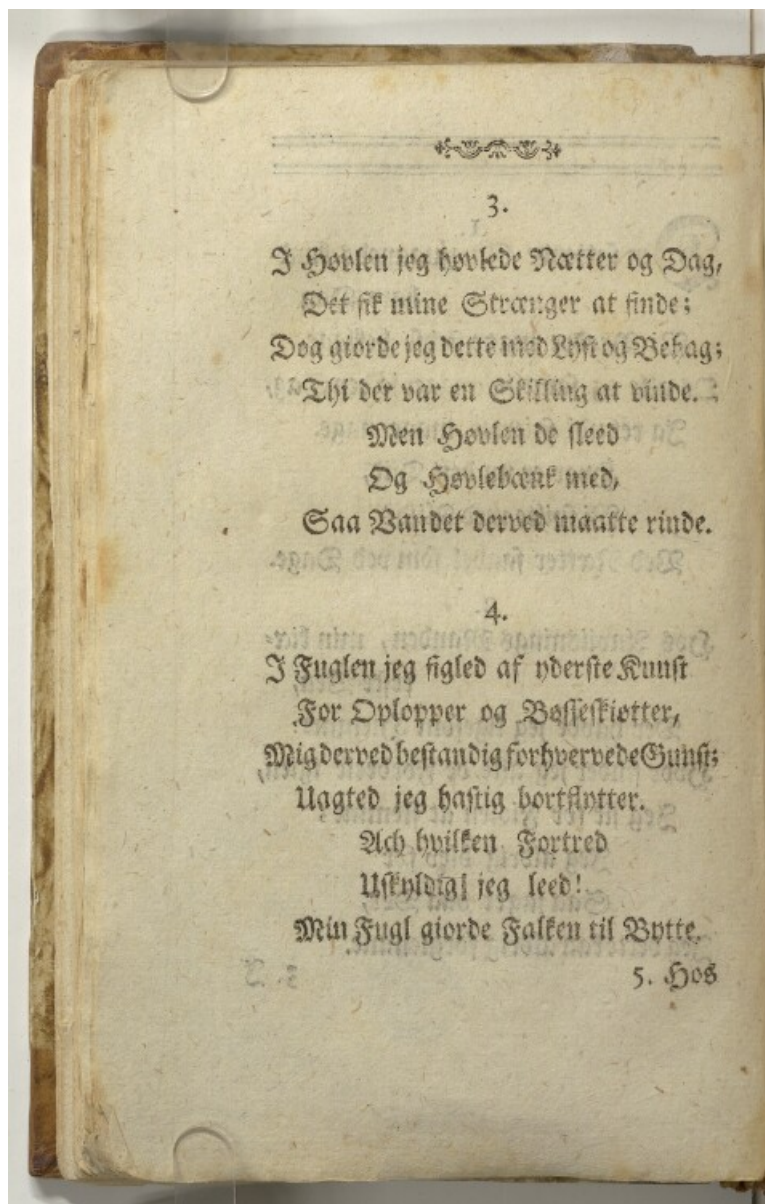 3.
I Høvlen jeg høvlede Nætter og Dag,
Det fik mine Strænger at finde;
Dog giorde jeg dette med Lyst og Behag;
Thi der var en Skilling at vinde.
Men Høvlen de sleed
Og Høvlebænk med,
Saa Vandet derved maatte rinde.
4.
I Fuglen jeg figled af yderste Kunst
For Oplopper og Bøsseskiøtter,
Mig derved bestandig forhvervede Gunst;
Uagted jeg hastig bortflytter.
Ach hvilken Fortred
Uskyldig jeg leed!
Min Fugl giorde Falken til Bytte.
5. Hos